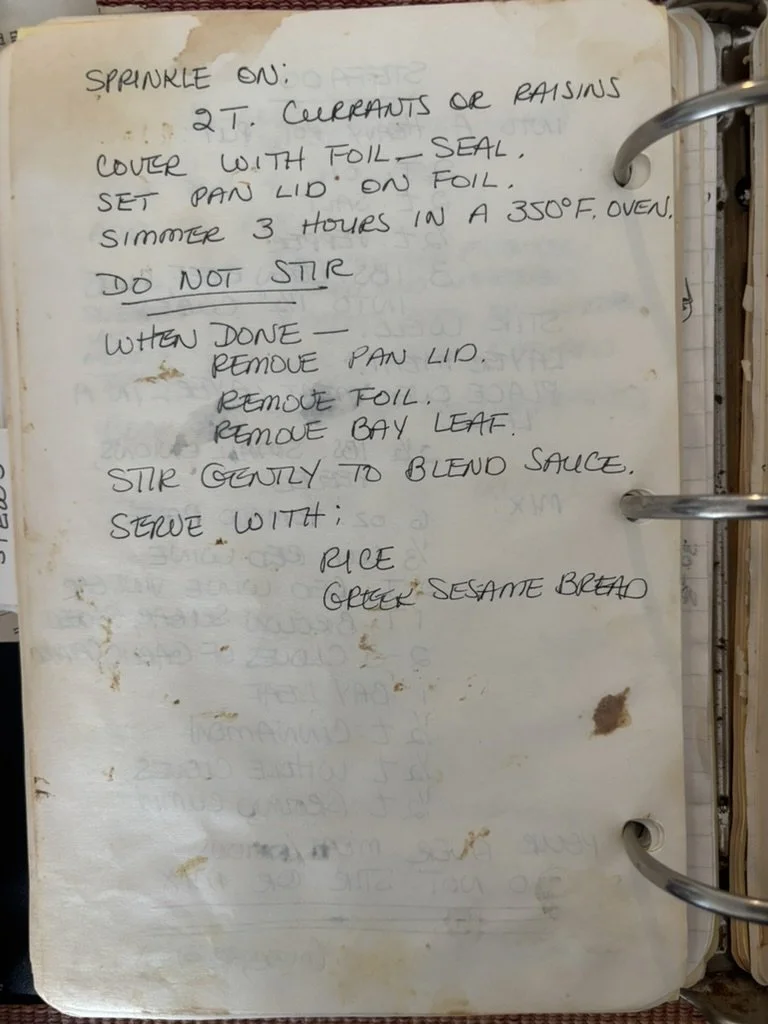 SPRINKLE ON:
2 T. CURRANTS OR RAISINS
COVER WITH FOIL — SEAL.
SET PAN LID ON FOIL.
SIMMER 3 HOURS IN A 350°F. OVEN.
DO NOT STIR
WHEN DONE —
REMOVE PAN LID.
REMOVE FOIL.
REMOVE BAY LEAF.
STIR GENTLY TO BLEND SAUCE.
SERVE WITH:
RICE
GREEK SESAME BREAD
STEWS